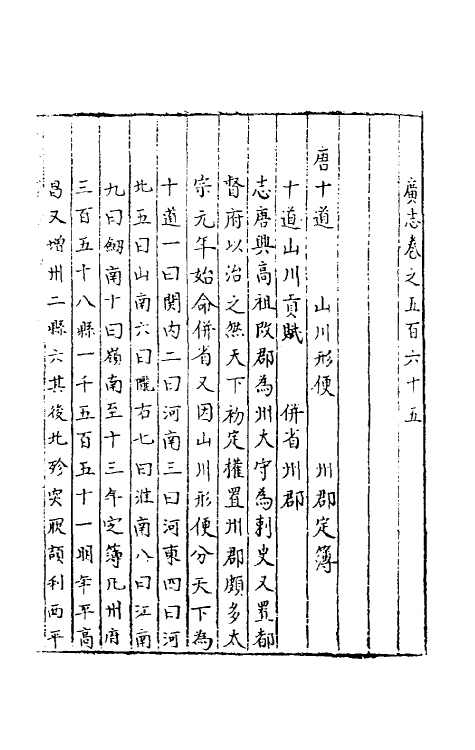 廣志卷之五百六十五
唐十道　山川形便　州郡定簿
十道山川貢賦　併省州郡
志唐興高祖改郡為州太守為刺史又置都
督府以治之然天下初定權置州郡頗多太
宗元年始命併省又因山川形便分天下為
十道一曰関内二曰河南三曰河東四曰河
北五曰山南六曰隴右七曰淮南八曰江南
九曰劔南十曰嶺南至十三年定簿凡州府
三百五十八縣一千五百五十一明年平高
昌又增州二縣六其後北殄突厥頡利西平